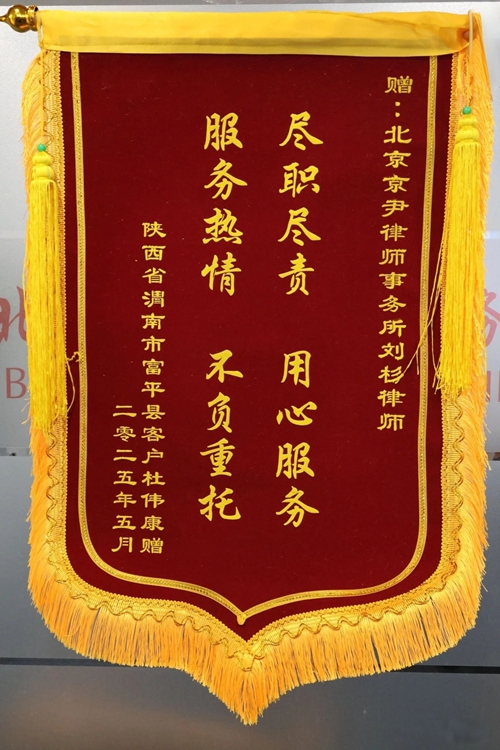 赠：北京京尹律师事务所刘杉律师
尽职尽责 用心服务
服务热情 不负重托
陕西省渭南市富平县客户杜伟康赠
二零二五年五月
北
务
B